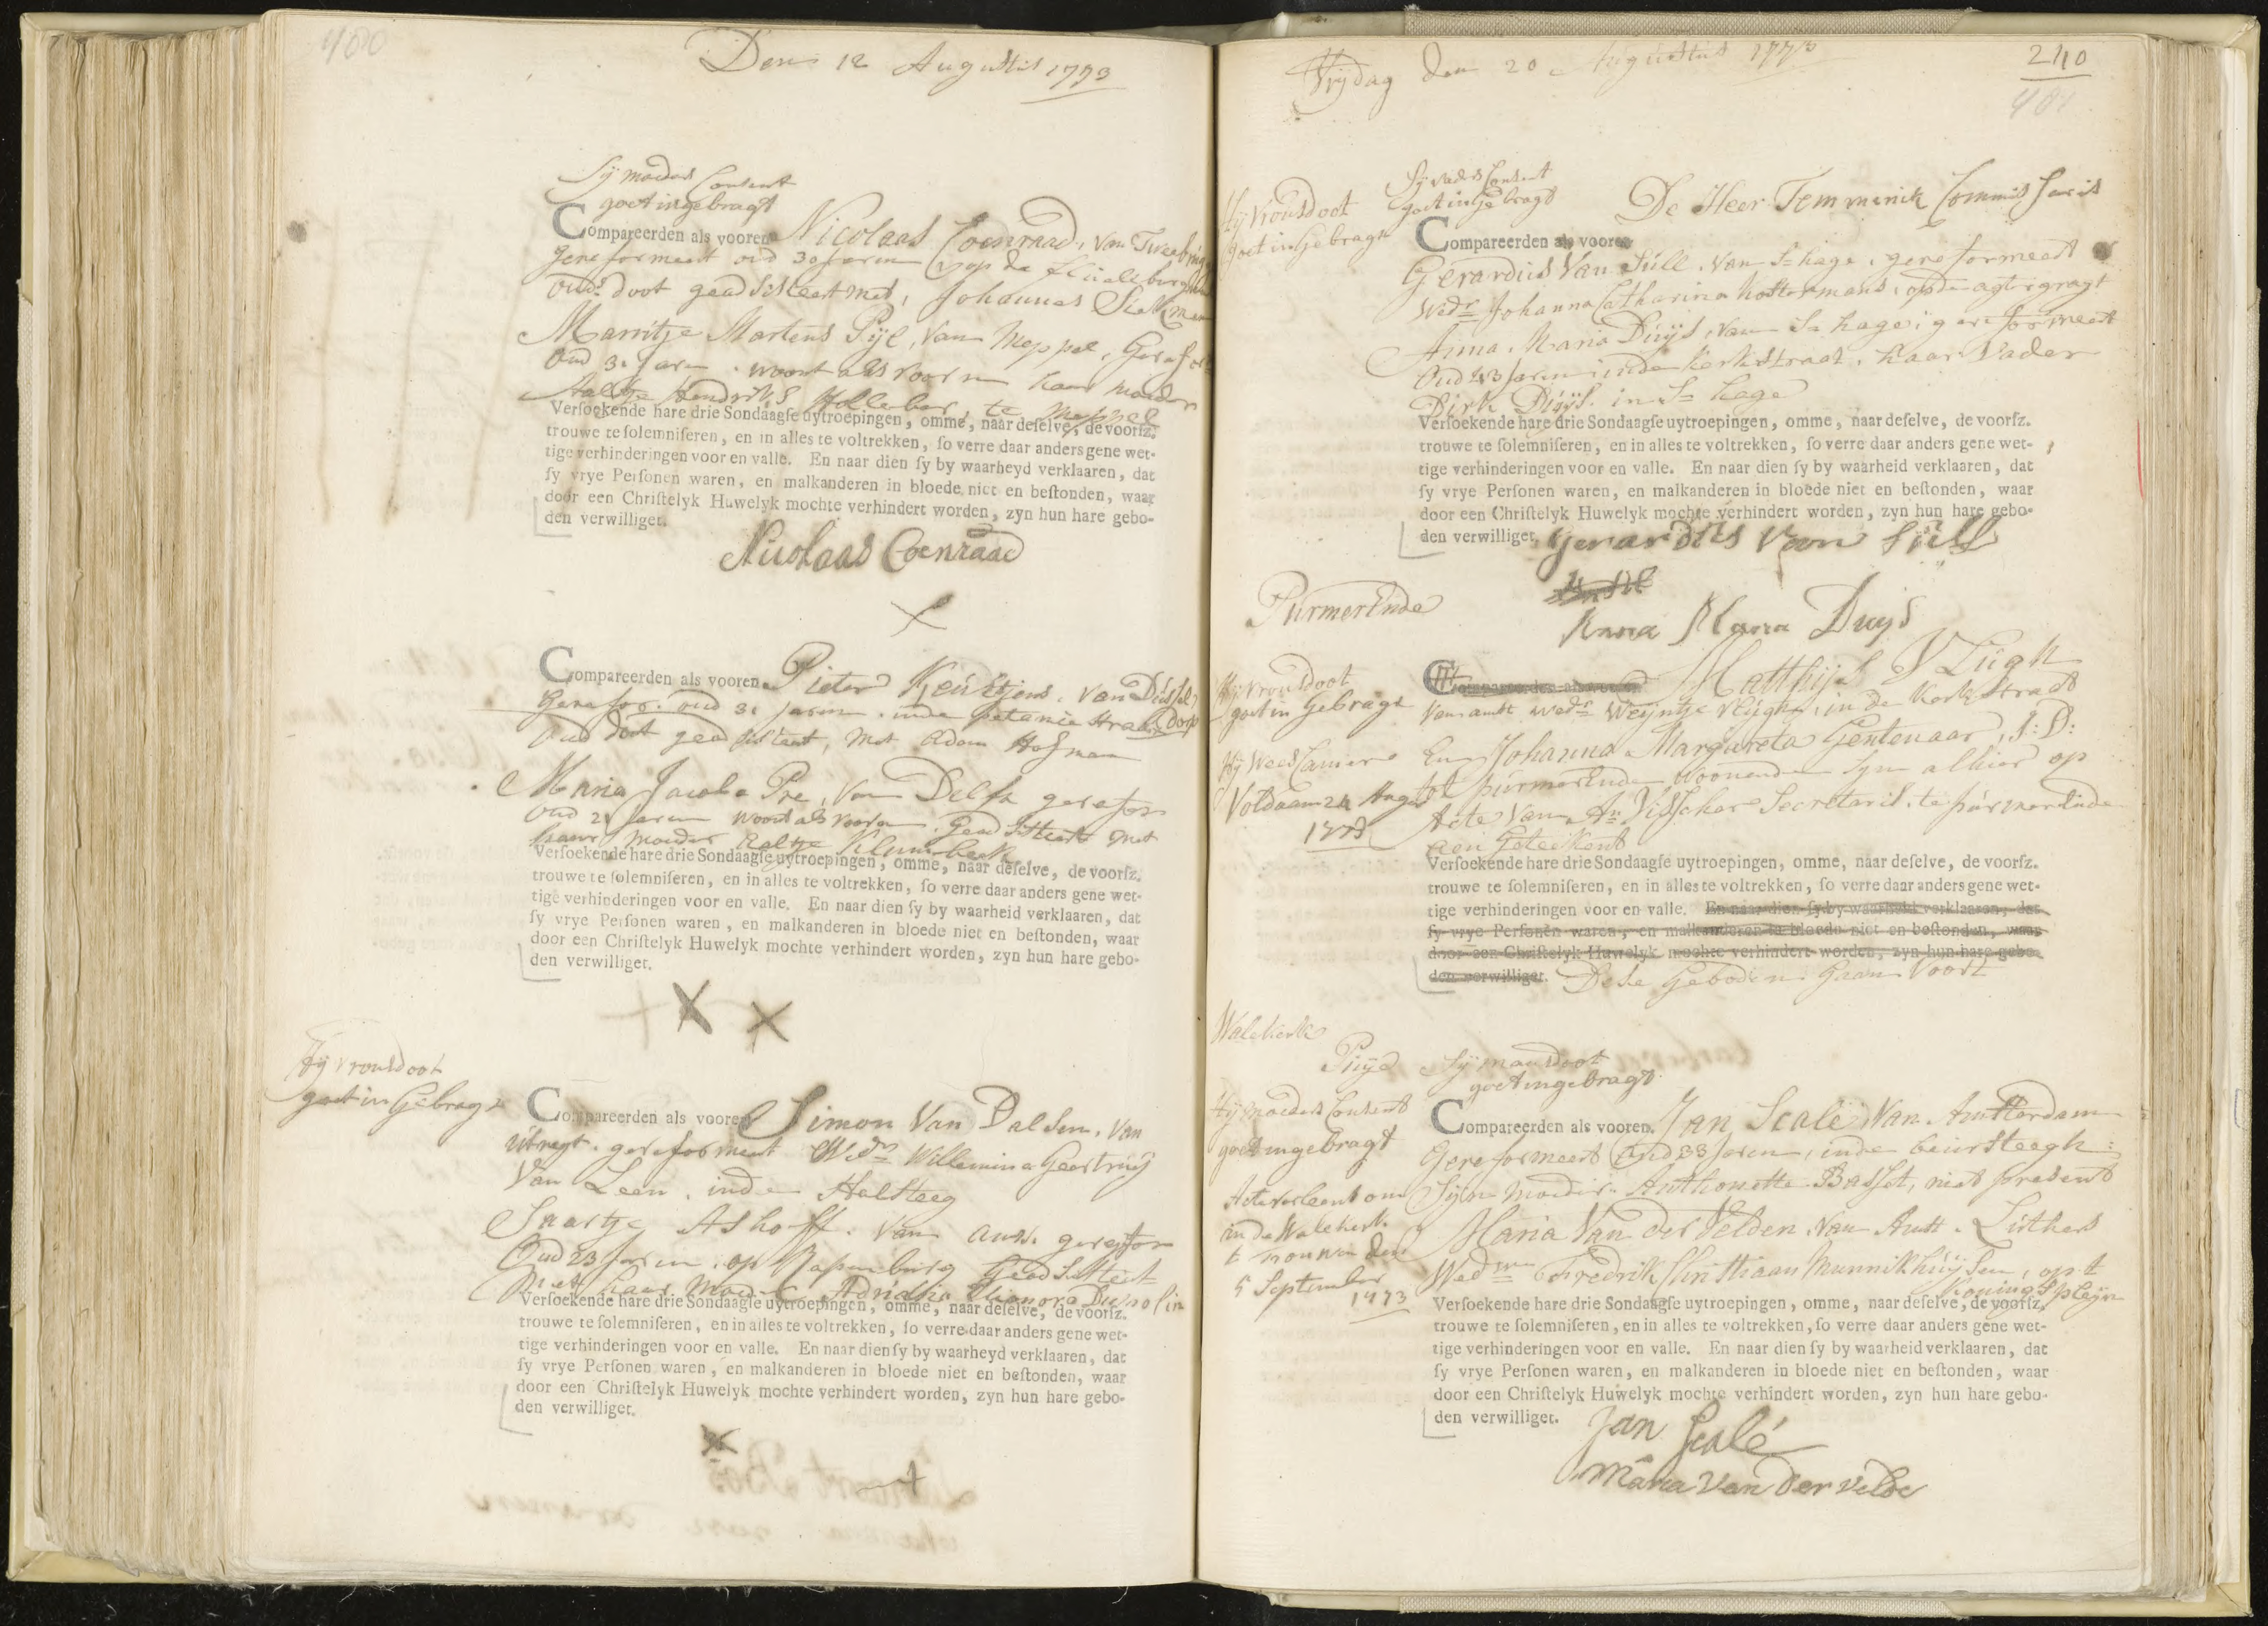 400
Den 12 Augustus 1773
Sy moeders Consent
goet ingebragt
Compareerden als vooren Nicolaas Coenraad, van Tweebrug
Gereformeert oud 30 Jaren op de
Oud.s doot geadsisteert met, Johannes
Marritje Martens Pijl, van Meppel, Gerefor
Oud 31 Jaren woont als vooren haar moeder
Aaltje Hendriks te Meppel
Versoekende hare drie Sondaagse uytroepingen, omme, naar deselve, de voorsz.
trouwe te solemniseren, en in alles te voltrekken, so verre daar anders gene wet-
tige verhinderingen voor en valle. En naar dien sy by waarheyd verklaaren, dat
sy vrye Personen waren, en malkanderen in bloede niet en bestonden, waar
door een Christelyk Huwelyk mochte verhindert worden, zyn hun hare gebo-
den verwilliget.
Nicolaas Coenraad
X
Compareerden als vooren Pieter Keuktjens, van Dussel
Gerefor. oud 31 Jaren inde Betanie straat dorp
Oud doot geadsisteert, met Adam Hofman
Maria Jacoba Pre, van Delft gerefor
Oud 21 Jaren woont als vooren, Geadsisteert met
haar moeder Aaltje
Versoekende hare drie Sondaagse uytroepingen, omme, naar deselve, de voorsz.
trouwe te solemniseren, en in alles te voltrekken, so verre daar anders gene wet-
tige verhinderingen voor en valle. En naar dien sy by waarheid verklaaren, dat
sy vrye Personen waren, en malkanderen in bloede niet en bestonden, waar
door een Christelyk Huwelyk mochte verhindert worden, zyn hun hare gebo-
den verwilliget.
X X
Hy vrous doot
goet in Gebragt
Compareerden als vooren Simon Van Dalsen, van
Utregt. gereformeert Wed.r Willemina Geertruij
Van Leen, inde Halsteeg
Saartje Ashoff. van Amst. gerefor
Oud 23 Jaren, op Rapenburg Geadsisteert
Met haar Moeder Adriana Elionora
Versoekende hare drie Sondaagse uytroepingen, omme, naar deselve, de voorsz.
trouwe te solemniseren, en in alles te voltrekken, so verre daar anders gene wet-
tige verhinderingen voor en valle. En naar dien sy by waarheyd verklaaren, dat
sy vrye Personen waren, en malkanderen in bloede niet en bestonden, waar
door een Christelyk Huwelyk mochte verhindert worden, zyn hun hare gebo-
den verwilliget.
X +
Vrijdag den 20 Augustus 1773
240
401
Hy vrous doot
goet in Gebragt
Sy vaders Consent
goet in Gebragt
De Heer Temminck Commissaris
Compareerden als vooren
Gerardus Van Süll. van S hage, gereformeert
Wed.r Johanna Catharina Kostermans, op de agtergragt
Anna Maria Duijs, van S hage, gereformeert
Oud 43 Jaren inde kerkstraat, haar Vader
Dirk Duijs in S hage
Versoekende hare drie Sondaagse uytroepingen, omme, naar deselve, de voorsz.
trouwe te solemniseren, en in alles te voltrekken, so verre daar anders gene wet-
tige verhinderingen voor en valle. En naar dien sy by waarheid verklaaren, dat
sy vrye Personen waren, en malkanderen in bloede niet en bestonden, waar
door een Christelyk Huwelyk mochte verhindert worden, zyn hun hare gebo-
den verwilliget. Gerardus Van Süll
Anna Maria Duijs
Purmerende
Hy vrous doot
goet in Gebragt
Hy Wees Camer
Voldaan 24 Aug.s
1773
Compareerden als vooren Matthijs Vlugh
van amst wed.r Weijntje Vlugh, in de Kerkstraat
En Johanna Margareta Gentenaar, J: D:
tot purmerende woonende Syn alhier op
Acte van A.n Visscher Secretaris te purmerende
aen Geteekent
Versoekende hare drie Sondaagse uytroepingen, omme, naar deselve, de voorsz.
trouwe te solemniseren, en in alles te voltrekken, so verre daar anders gene wet-
tige verhinderingen voor en valle. En naar dien sy by waarheid verklaaren, dat
sy vrye Personen waren, en malkanderen in bloede niet en bestonden, waar
door een Christelyk Huwelyk mochte verhindert worden, zyn hun hare gebo-
den verwilliget. Dese Geboden Gaan Voort
Walekerk
Puije
Sy mans doot
goet ingebragt
Hy moeders Consent
goet ingebragt
Acte verleent om
in de Walekerk
te Trouwen den
5 September
1773
Compareerden als vooren. Jan Scalé van Amsterdam
Gereformeert Oud 33 Jaren, inde beursteegh:
Syn moeder Anthonette Basset, niet present
Maria Van der Velden van Amst. Luthers
Wed.we Fredrik Christiaan Munnikhuijsen, op t
Koningspleyn
Versoekende hare drie Sondaagse uytroepingen, omme, naar deselve, de voorsz.
trouwe te solemniseren, en in alles te voltrekken, so verre daar anders gene wet-
tige verhinderingen voor en valle. En naar dien sy by waarheid verklaaren, dat
sy vrye Personen waren, en malkanderen in bloede niet en bestonden, waar
door een Christelyk Huwelyk mochte verhindert worden, zyn hun hare gebo-
den verwilliget.
Jan Scalé
Maria van der velde